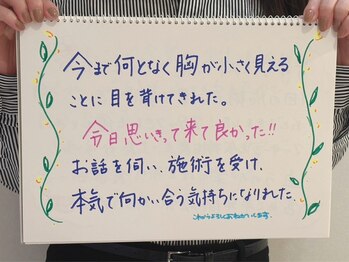 今まで何となく胸が小さく見える
ことに目を背けてきれた。
今日思いきって来て良かった!!
お話を伺い、施術を受け、
本気で向かい合う気持ちになりました。
これからよろしくおねがいします。